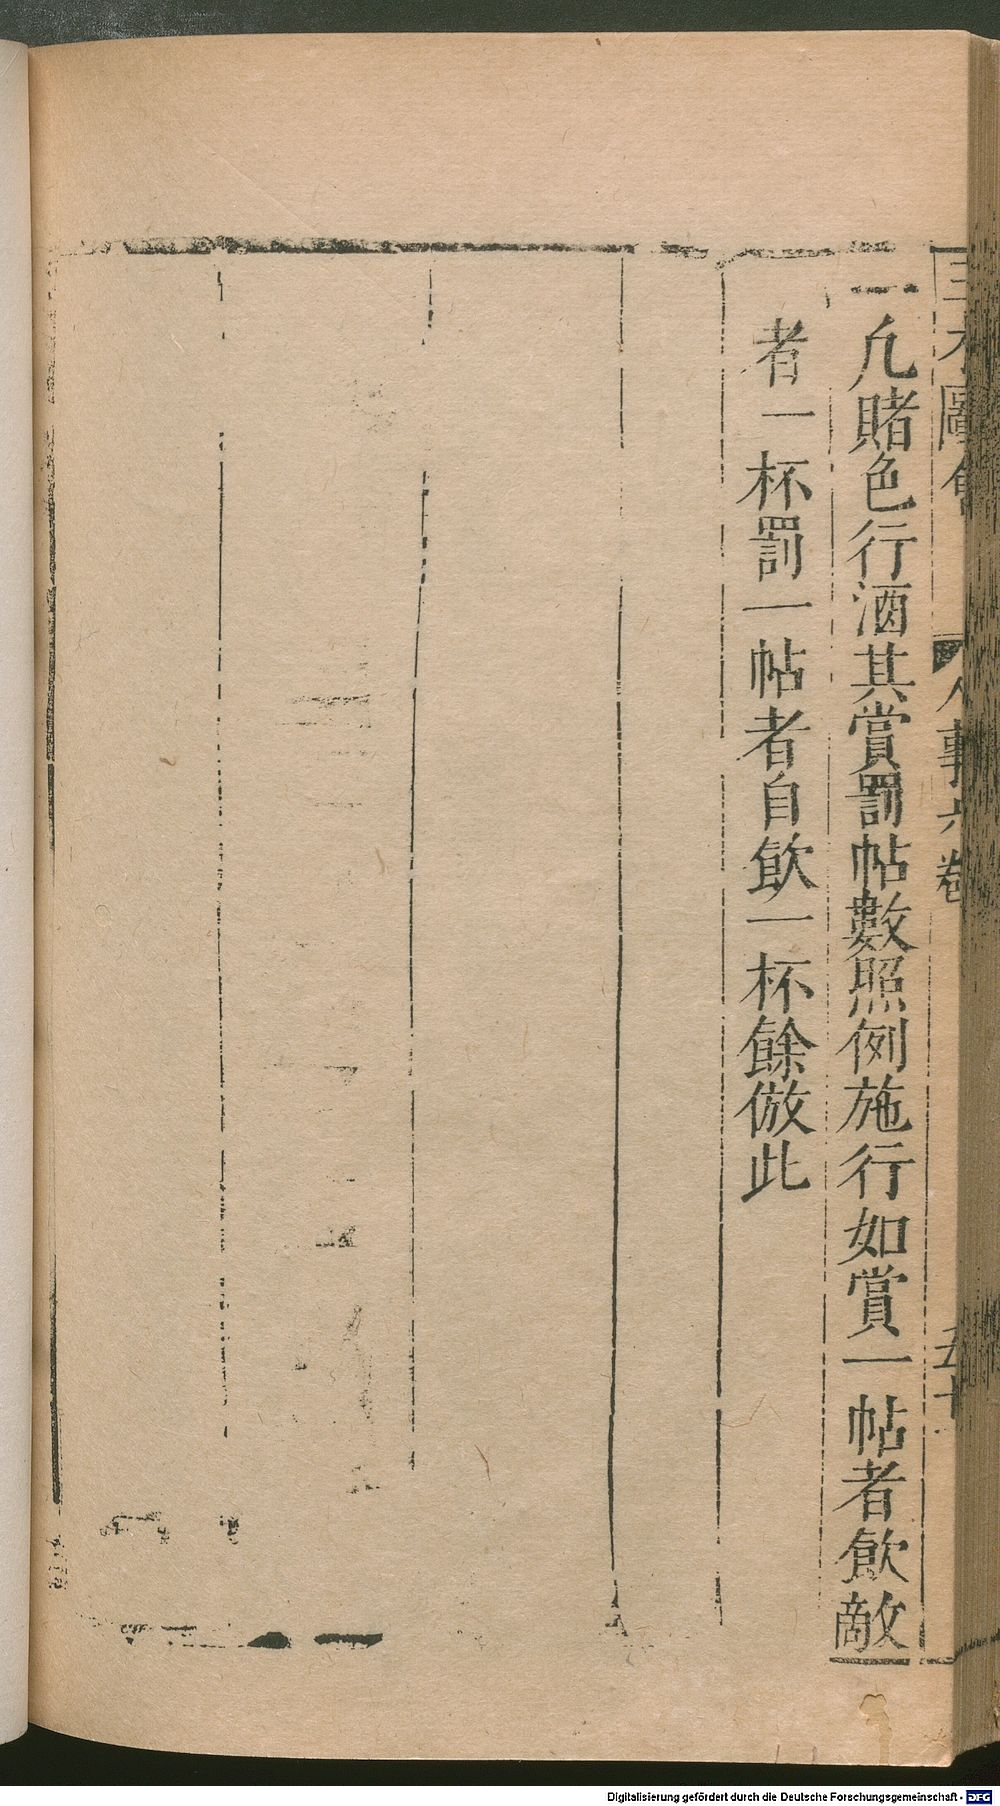 三才圖會 人事六卷 五十
一凢賭色行酒其賞罰帖數照例施行如賞一帖者飮敵
者一杯罰一帖者自飮一杯餘倣此
Digitalisierung gefördert durch die Deutsche Forschungsgemeinschaft - DFG